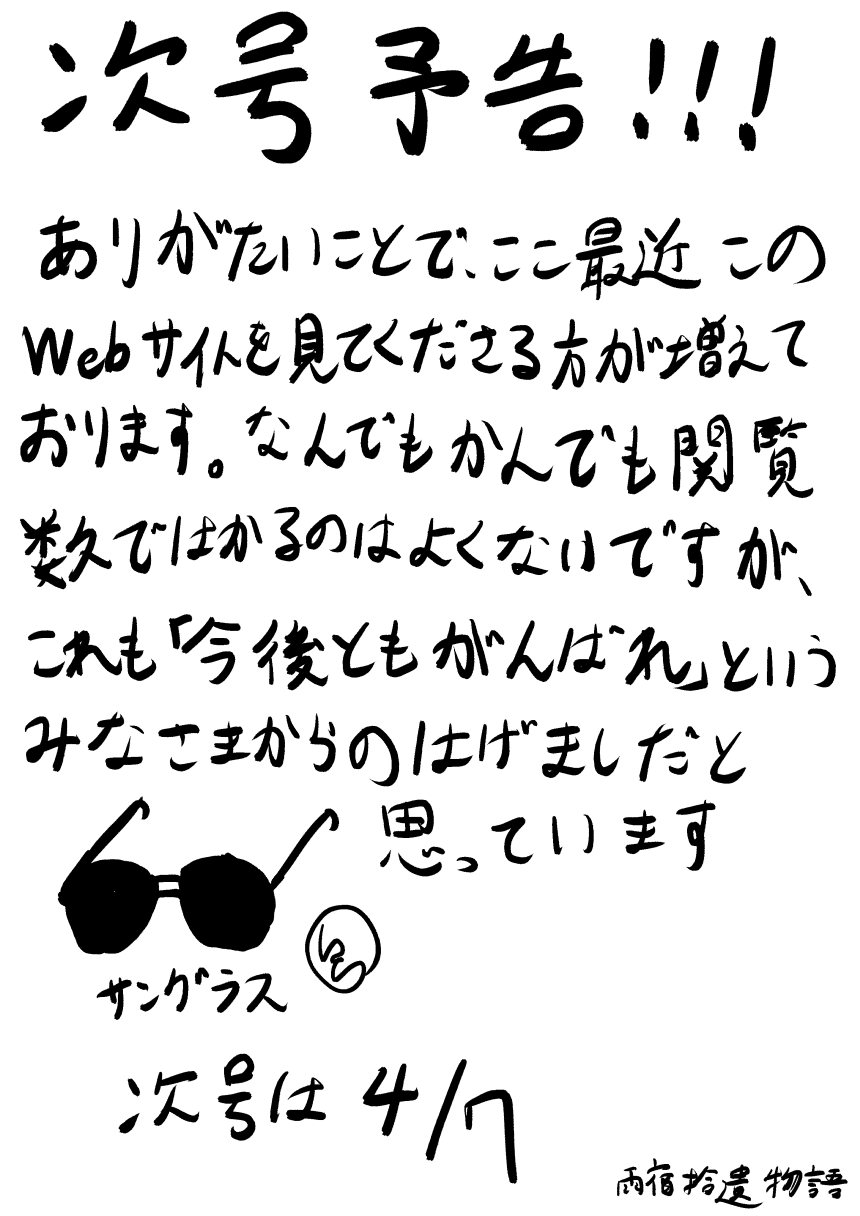 次号予告!!!
ありがたいことで、ここ最近この
Webサイトを見てくださる方が増えて
おります。なんでもかんでも閲覧
数ではかるのはよくないですが、
これも「今後ともがんばれ」という
みなさまからのはげましだと
思っています
サングラス
次号は4/7
雨宿拾遺物語